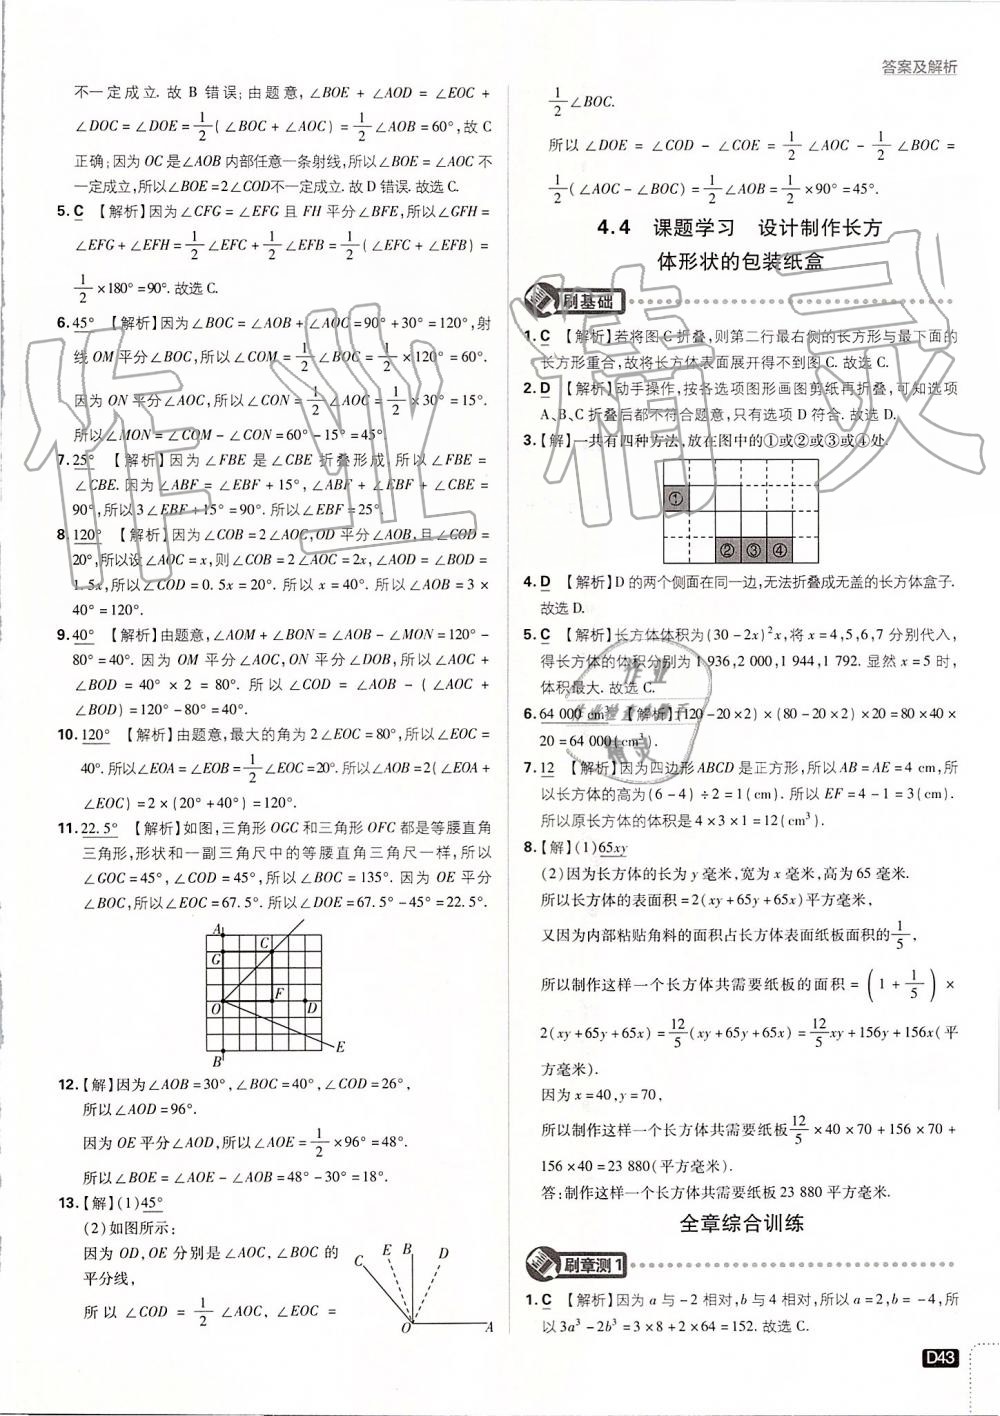 答案及解析
不一定成立. 故 B 错误; 由题意, ∠BOE + ∠AOD = ∠EOC +
∠DOC = ∠DOE = 1/2 ( ∠BOC + ∠AOC ) = 1/2 ∠AOB = 60°, 故 C
正确; 因为 OC 是∠AOB 内部任意一条射线, 所以∠BOE = ∠AOC 不
一定成立, 所以∠BOE = 2∠COD不一定成立. 故 D 错误. 故选 C.
5. C 【解析】因为∠CFG = ∠EFG 且 FH 平分∠BFE, 所以∠GFH =
∠EFG + ∠EFH = 1/2 ∠EFC + 1/2 ∠EFB = 1/2 ( ∠EFC + ∠EFB ) =
1/2 × 180° = 90°. 故选 C.
6. 45° 【解析】因为∠BOC = ∠AOB + ∠AOC = 90° + 30° = 120°, 射
线 OM 平分∠BOC, 所以∠COM = 1/2 ∠BOC = 1/2 × 120° = 60°.
因为 ON 平分∠AOC, 所以∠CON = 1/2 ∠AOC = 1/2 × 30° = 15°.
所以∠MON = ∠COM - ∠CON = 60° - 15° = 45°.
7. 25° 【解析】因为∠FBE 是∠CBE 折叠形成, 所以∠FBE =
∠CBE. 因为∠ABF = ∠EBF + 15°, ∠ABF + ∠EBF + ∠CBE =
90°, 所以 3∠EBF + 15° = 90°. 所以∠EBF = 25°.
8. 120° 【解析】因为∠COB = 2∠AOC, OD 平分∠AOB, 且∠COD =
20°, 所以设∠AOC = x, 则∠COB = 2∠AOC = 2x, ∠AOD = ∠BOD =
1.5x, 所以∠COD = 0.5x = 20°. 所以 x = 40°. 所以∠AOB = 3 ×
40° = 120°.
9. 40° 【解析】由题意, ∠AOM + ∠BON = ∠AOB - ∠MON = 120° -
80° = 40°. 因为 OM 平分∠AOC, ON 平分∠DOB, 所以∠AOC +
∠BOD = 40° × 2 = 80°. 所以∠COD = ∠AOB - ( ∠AOC +
∠BOD) = 120° - 80° = 40°.
10. 120° 【解析】由题意, 最大的角为 2∠EOC = 80°, 所以∠EOC =
40°. 所以∠EOA = ∠EOB = 1/2 ∠EOC = 20°. 所以∠AOB = 2( ∠EOA +
∠EOC) = 2 × (20° + 40°) = 120°.
11. 22.5° 【解析】如图, 三角形 OGC 和三角形 OFC 都是等腰直角
三角形, 形状和一副三角尺中的等腰直角三角尺一样, 所以
∠GOC = 45°, ∠COD = 45°, 所以∠BOC = 135°. 因为 OE 平分
∠BOC, 所以∠EOC = 67.5°. 所以∠DOE = 67.5° - 45° = 22.5°.
A
G
C
O
F
D
E
B
12. 【解】因为∠AOB = 30°, ∠BOC = 40°, ∠COD = 26°,
所以∠AOD = 96°.
因为 OE 平分∠AOD, 所以∠AOE = 1/2 × 96° = 48°.
所以∠BOE = ∠AOE - ∠AOB = 48° - 30° = 18°.
13. 【解】(1) 45°
(2) 如图所示:
因为 OD, OE 分别是∠AOC, ∠BOC 的
平分线,
所以∠COD = 1/2 ∠AOC, ∠EOC =
C
E
B
D
O
A
1/2 ∠BOC.
所以∠DOE = ∠COD - ∠COE = 1/2 ∠AOC - 1/2 ∠BOC =
1/2 ( ∠AOC - ∠BOC ) = 1/2 ∠AOB = 1/2 × 90° = 45°.
4.4 课题学习 设计制作长方
体形状的包装纸盒
刷基础
1. C 【解析】若将图 C 折叠, 则第二行最右侧的长方形与最下面的
长方形重合, 故将长方体表面展开得不到图 C. 故选 C.
2. D 【解析】动手操作, 按各选项图形画图剪纸再折叠, 可知选项
A、B、C 折叠后都不符合题意, 只有选项 D 符合. 故选 D.
3. 【解】一共有四种方法, 放在图中的①或②或③或④处.
①
② ③ ④
4. D 【解析】D 的两个侧面在同一边, 无法折叠成无盖的长方体盒子.
故选 D.
5. C 【解析】长方体体积为 (30 - 2x)²x, 将 x = 4, 5, 6, 7 分别代入,
得长方体的体积分别为 1 936, 2 000, 1 944, 1 792. 显然 x = 5 时,
体积最大. 故选 C.
6. 64 000 cm³ 【解析】(120 - 20 × 2) × (80 - 20 × 2) × 20 = 80 × 40 ×
20 = 64 000(cm³).
7. 12 【解析】因为四边形 ABCD 是正方形, 所以 AB = AE = 4 cm, 所
以长方体的高为 (6 - 4) ÷ 2 = 1(cm). 所以 EF = 4 - 1 = 3(cm).
所以原长方体的体积是 4 × 3 × 1 = 12(cm³).
8. 【解】(1) 65xy
(2) 因为长方体的长为 y 毫米, 宽为 x 毫米, 高为 65 毫米.
所以长方体的表面积 = 2(xy + 65y + 65x) 平方毫米,
又因为内部粘贴角料的面积占长方体表面纸板面积的 1/5,
所以制作这样一个长方体共需要纸板的面积 = (1 + 1/5) ×
2(xy + 65y + 65x) = 12/5 (xy + 65y + 65x) = 12/5 xy + 156y + 156x(平
方毫米).
因为 x = 40, y = 70,
所以制作这样一个长方体共需要纸板 12/5 × 40 × 70 + 156 × 70 +
156 × 40 = 23 880(平方毫米).
答: 制作这样一个长方体共需要纸板 23 880 平方毫米.
全章综合训练
刷章测 1
1. C 【解析】因为 a 与 -2 相对, b 与 4 相对, 所以 a = 2, b = -4, 所
以 3a³ - 2b³ = 3 × 8 + 2 × 64 = 152. 故选 C.
D43
作业精灵
作业
精灵